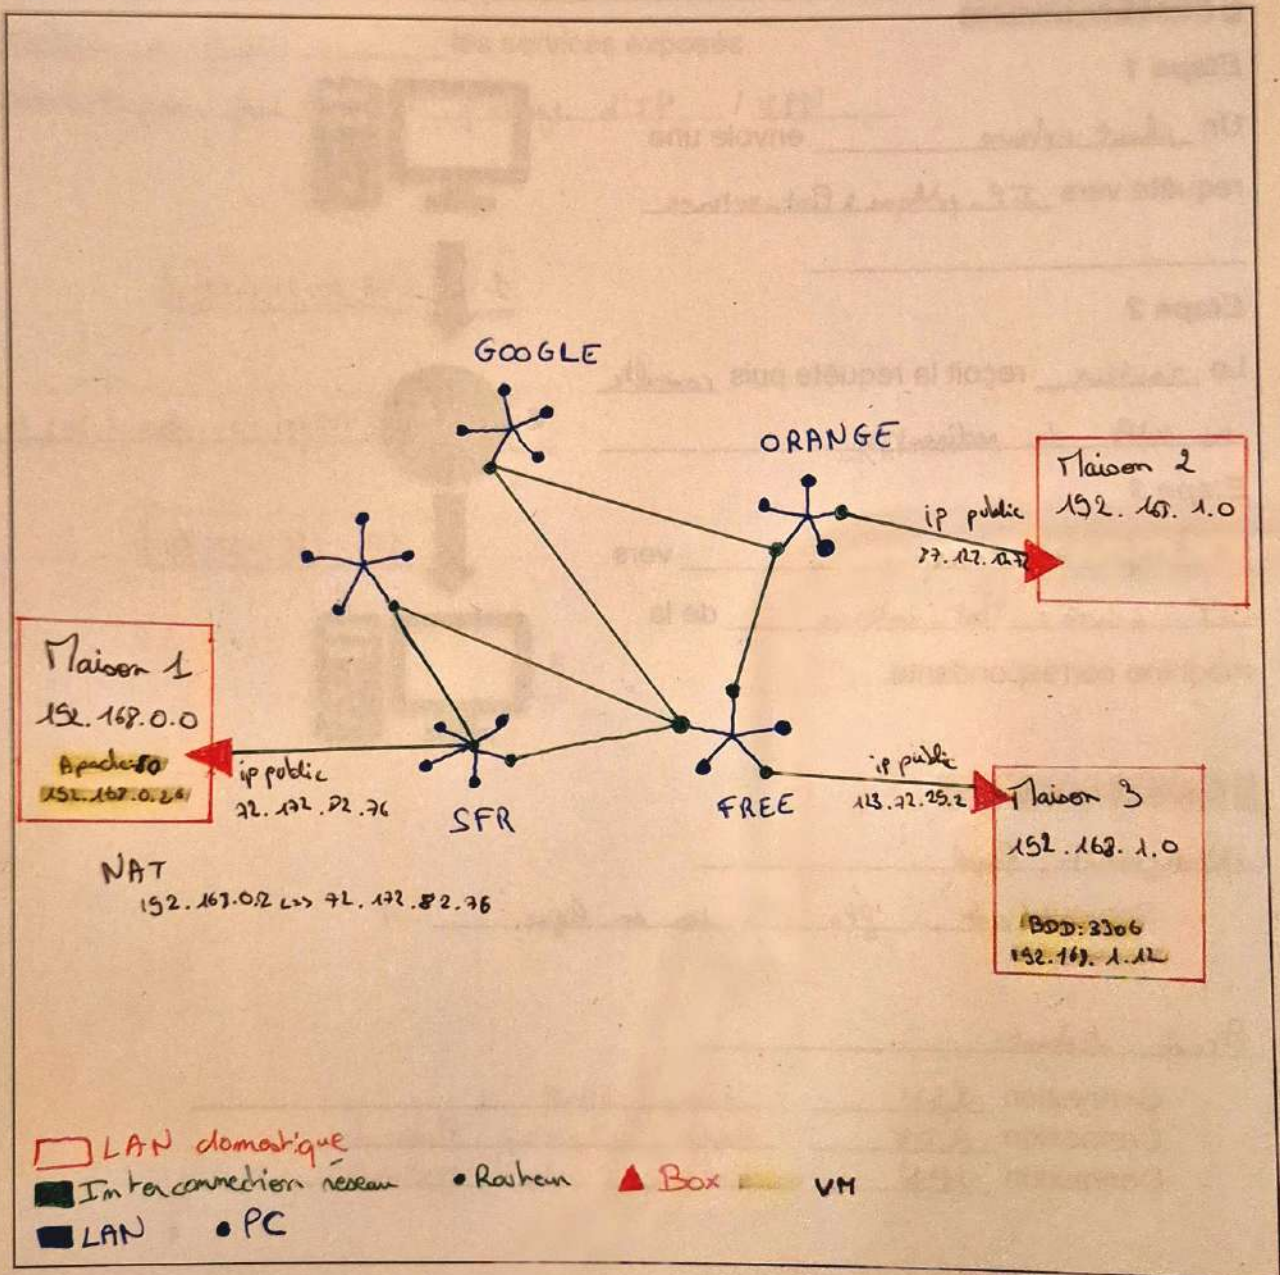 GOOGLE
ORANGE
Maison 2
192.168.1.0
ip public
Maison 1
192.168.0.0
Apache:80
ip public
72.172.82.76
SFR
FREE
ip public
123.72.25.2
Maison 3
192.168.1.0
BDD:3306
192.168.1.12
NAT
192.168.0.2 <=> 72.172.82.76
LAN domestique
Interconnection réseau
Routeur
Box
VM
LAN
PC